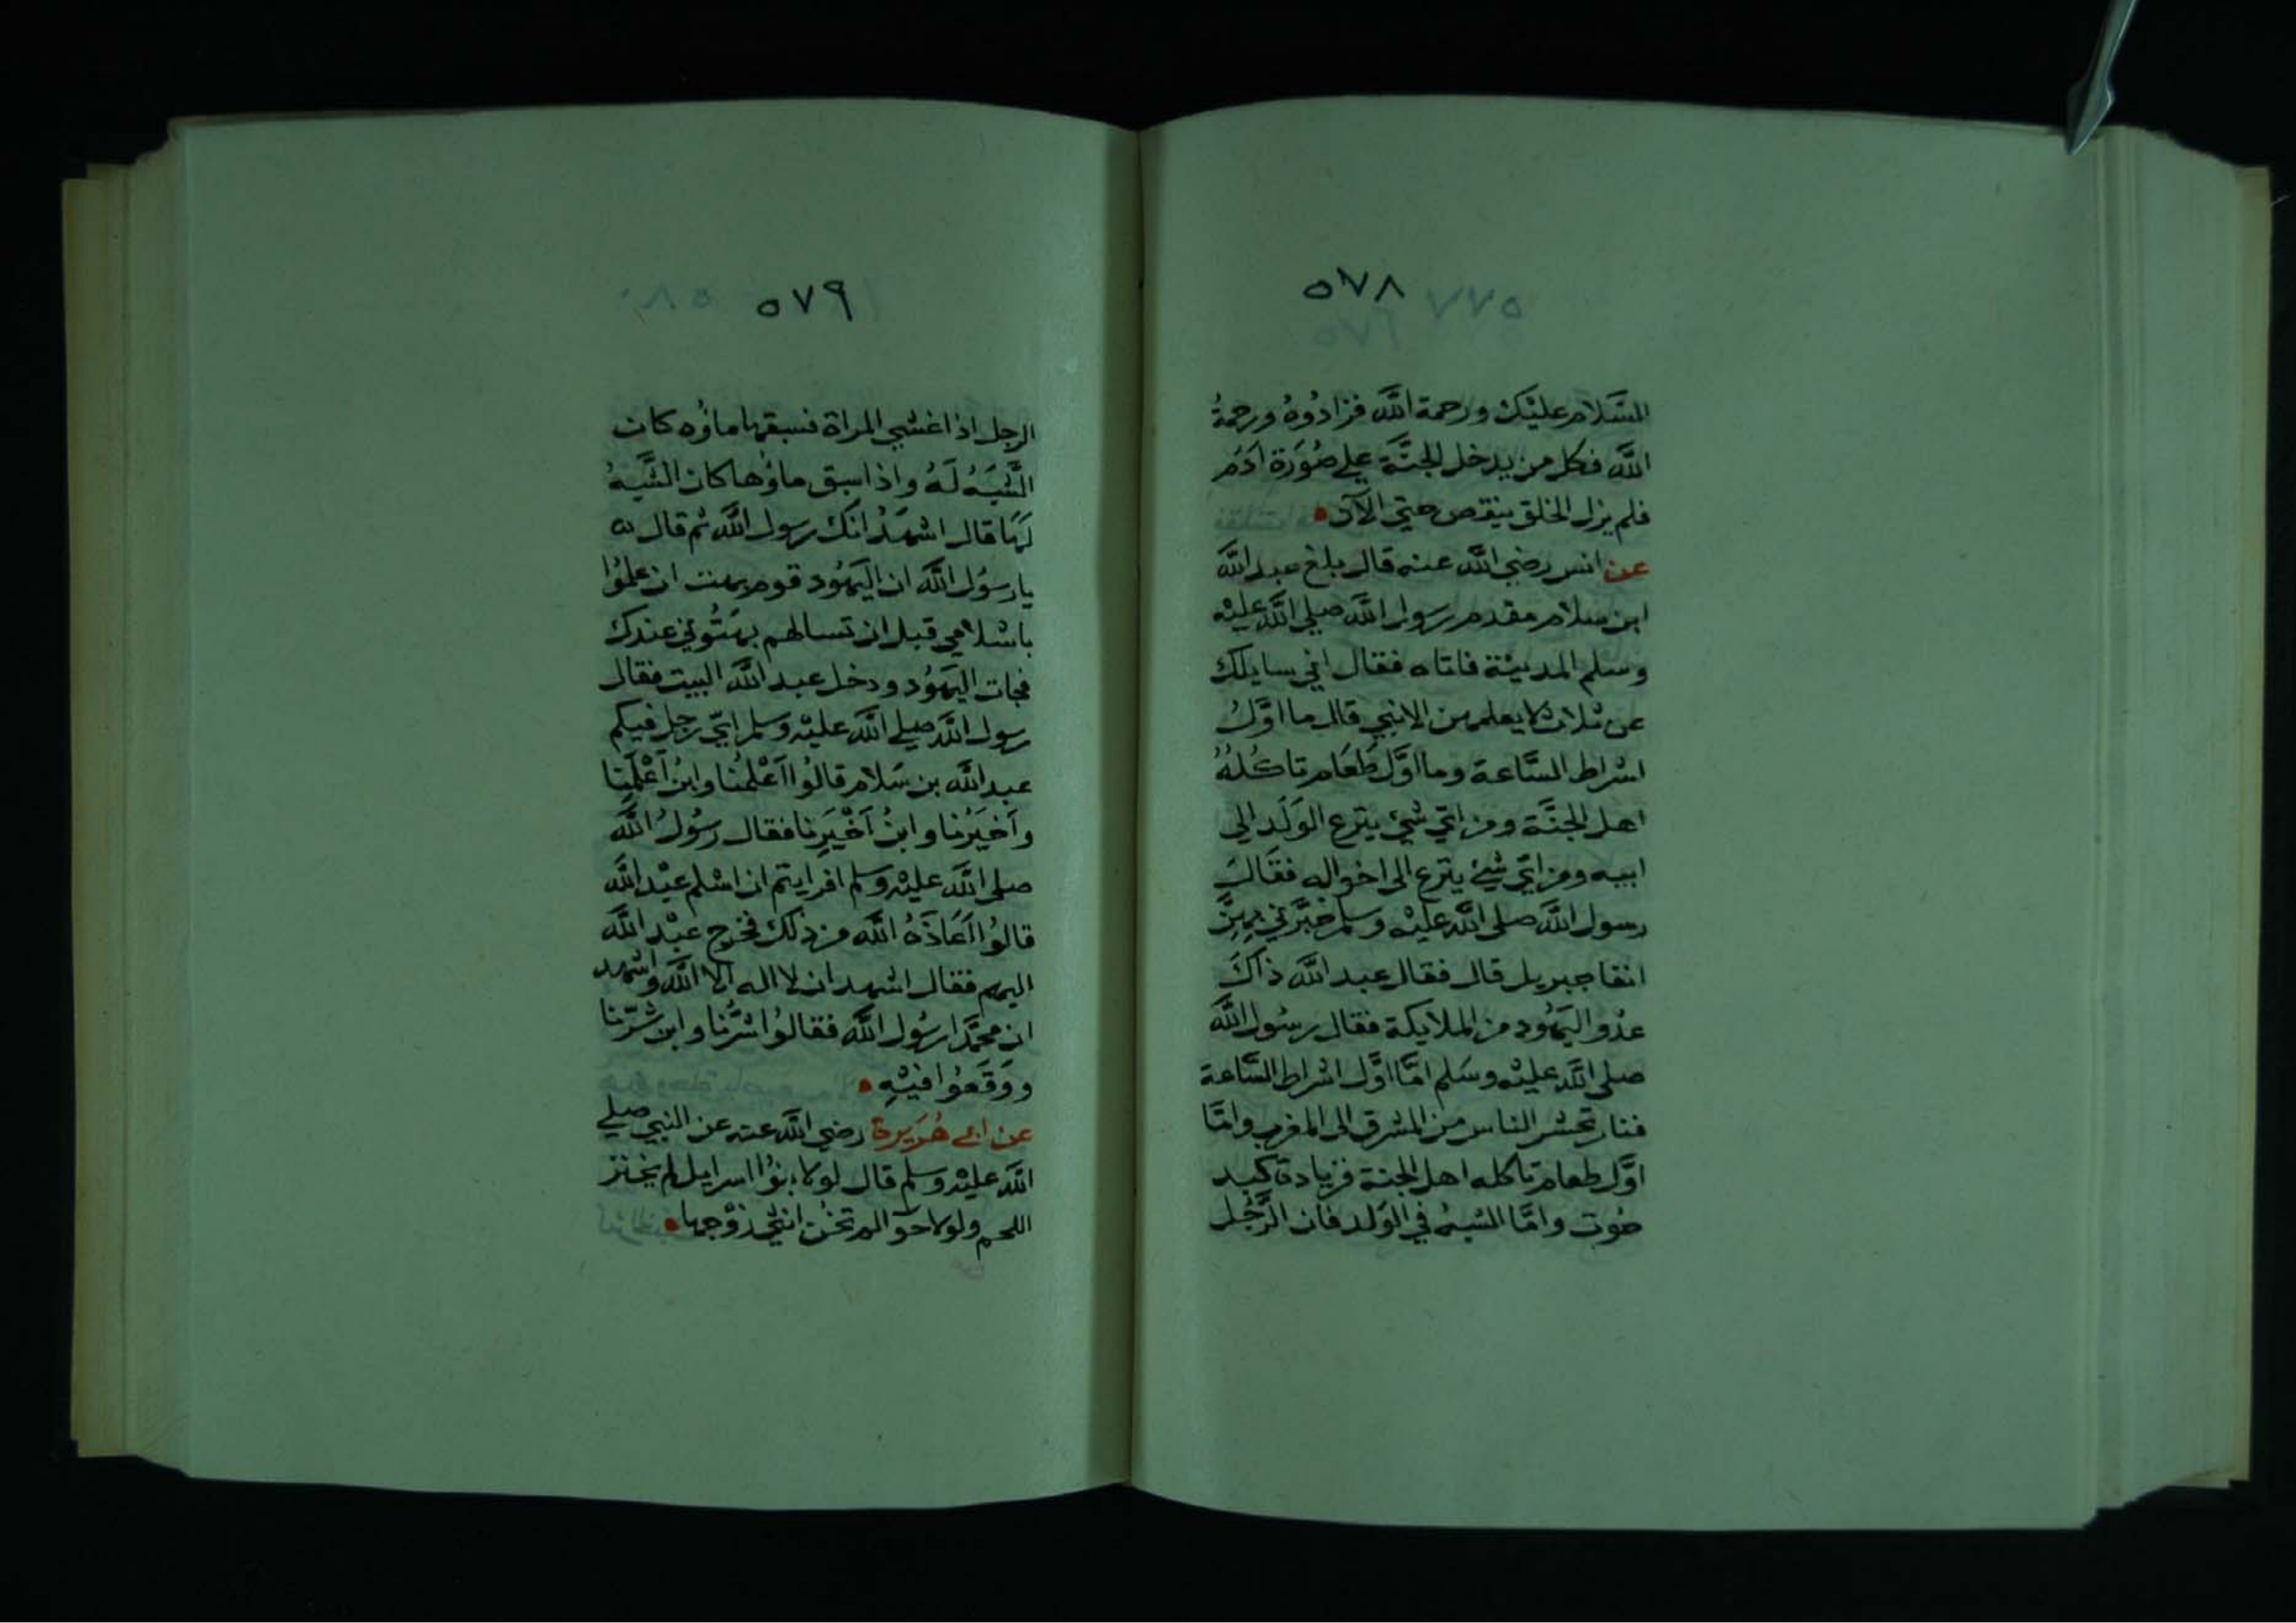 ٥٧٨
السَّلام عليْك ورحمة الله فزادُوهُ ورحمةُ
الله فكل من يدخل الجنَّة علي صُوَرة ادَمُ
فلم يزل الخلق ينقص حتي الآن
عن انس رضي الله عنه قال بلغ عبد الله
ابن سلام مقدم رسول الله صلي الله عليْه
وسلم المدينة فاتاه فقال اني سايلك
عن ثلاث لا يعلمهن الا نبي قال ما اوَّلُ
اشراط السَّاعة وما اوَّل طَعَام تاكلُهُ
اهل الجنَّة ومن ايّ شيْ ينزع الوَلَد الي
ابيه ومن ايّ شيْ ينزع الي اخواله فقَالَ
رسول الله صلي الله عليْه وسلم خبَّرني بهِنَّ
انفا جبريل قال فقال عبد الله ذاكَ
عدْو اليَهُود من الملايكة فقال رسُول الله
صلي الله عليْه وسَلم امَّا اوَّل اشراط السَّاعة
فنار تحشر الناس من المشرق الي المغرب وامَّا
اوَّل طعام تاكله اهل الجنة فزيادة كبد
حُوت وامَّا الشبهُ في الوَلد فان الرَّجُل
٥٧٩
الرجل اذا غشي المراة فسبقها ماؤه كان
الشَّبَهُ لَهُ واذا سبق ماؤها كان الشَّبهُ
لهَا قال اشهَدُ انك رسول الله ثم قال
يا رسُول الله ان اليَهُود قوم بهت ان علمُوا
باسْلامي قبل ان تسالهم بهَتُوني عندك
فجات اليهُود ودخل عبد الله البيت فقال
رسول الله صلي الله عليْه وسلم ايّ رجل فيكم
عبد الله بن سَلام قالُوا اَعْلمُنا وابنُ اَعْلَمِنا
واَخيَرُنا وابنُ اَخْيَرِنا فقال رسُولُ الله
صلي الله عليْه وسلم افرايتم ان اسْلم عبْد الله
قالُوا اَعَاذَهُ الله من ذلك فخرج عبْد الله
اليهم فقال اشهد ان لا اله الا الله واشهد
ان محمَّدا رسُول الله فقالُوا شرُّنا وابن شرّنا
ووَقَعُوا فيْهِ
عن ابي هُرَيرة رضي الله عنه عن النبي صلي
الله عليْه وسلم قال لولا بنُوا اسرايل لم يخنز
اللحم ولولا حوّا لم تخُن انثي زوْجها